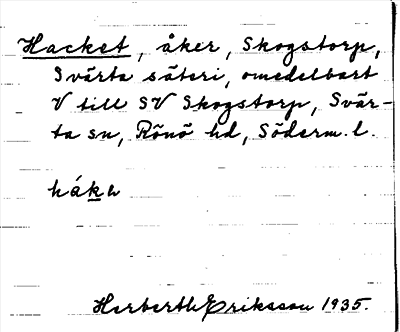 Hacket, åker, Skogstorp,
Svärta säteri, omedelbart
V till SV Skogstorp, Svär-
ta sn, Rönö hd, Söderm. l.
Herbert Eriksson 1935.